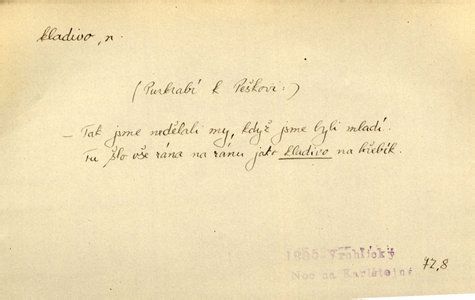 kladivo, n.
(Purkrabí k Peškovi:)
– Tak jsme nedělali my, když jsme byli mladí.
Tu šlo vše rána na ránu jako kladivo na hřebík.
Vrchlický
Noc na Karlštejně
72,8